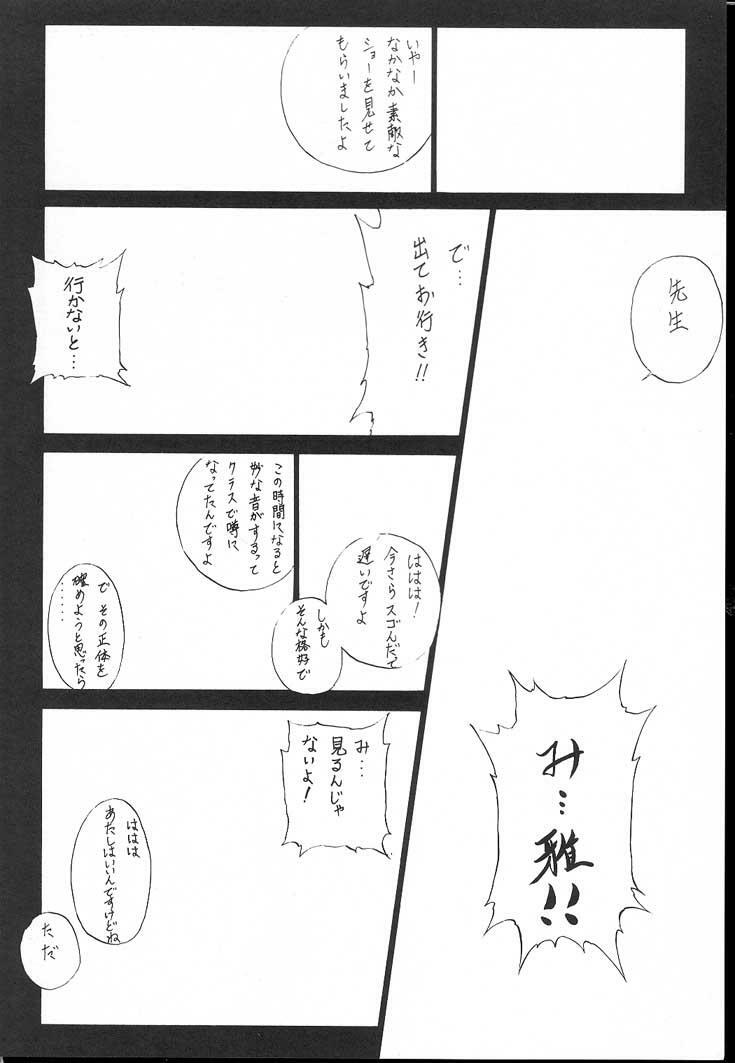 いやー
なかなか素敵な
ショーを見せて
もらいましたよ
先生
み…雅!!
で…
出てお行き!!
行かないと…
ははは!
今さらスゴんだって
遅いですよ
しかも
そんな格好で
この時間になると
妙な音がするって
クラスで噂に
なってたんですよ
で その正体を
確めようと思ったら
……
み…
見るんじゃ
ないよ!
ははは
あたしはいいんですけどね
ただ